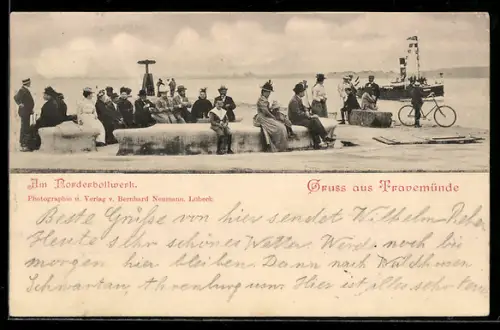 Am Norderbollwerk.
Gruss aus Travemünde
Photographie u. Verlag v. Bernhard Nonmann, Lübeck
Beste Grüße von hier sendet Wilhelm
Heute sehr schönes Wetter. Werde noch bis
morgen hier bleiben. Dann nach Waldhusen
Schwartau Ahrensburg usw. Hier ist alles sehr